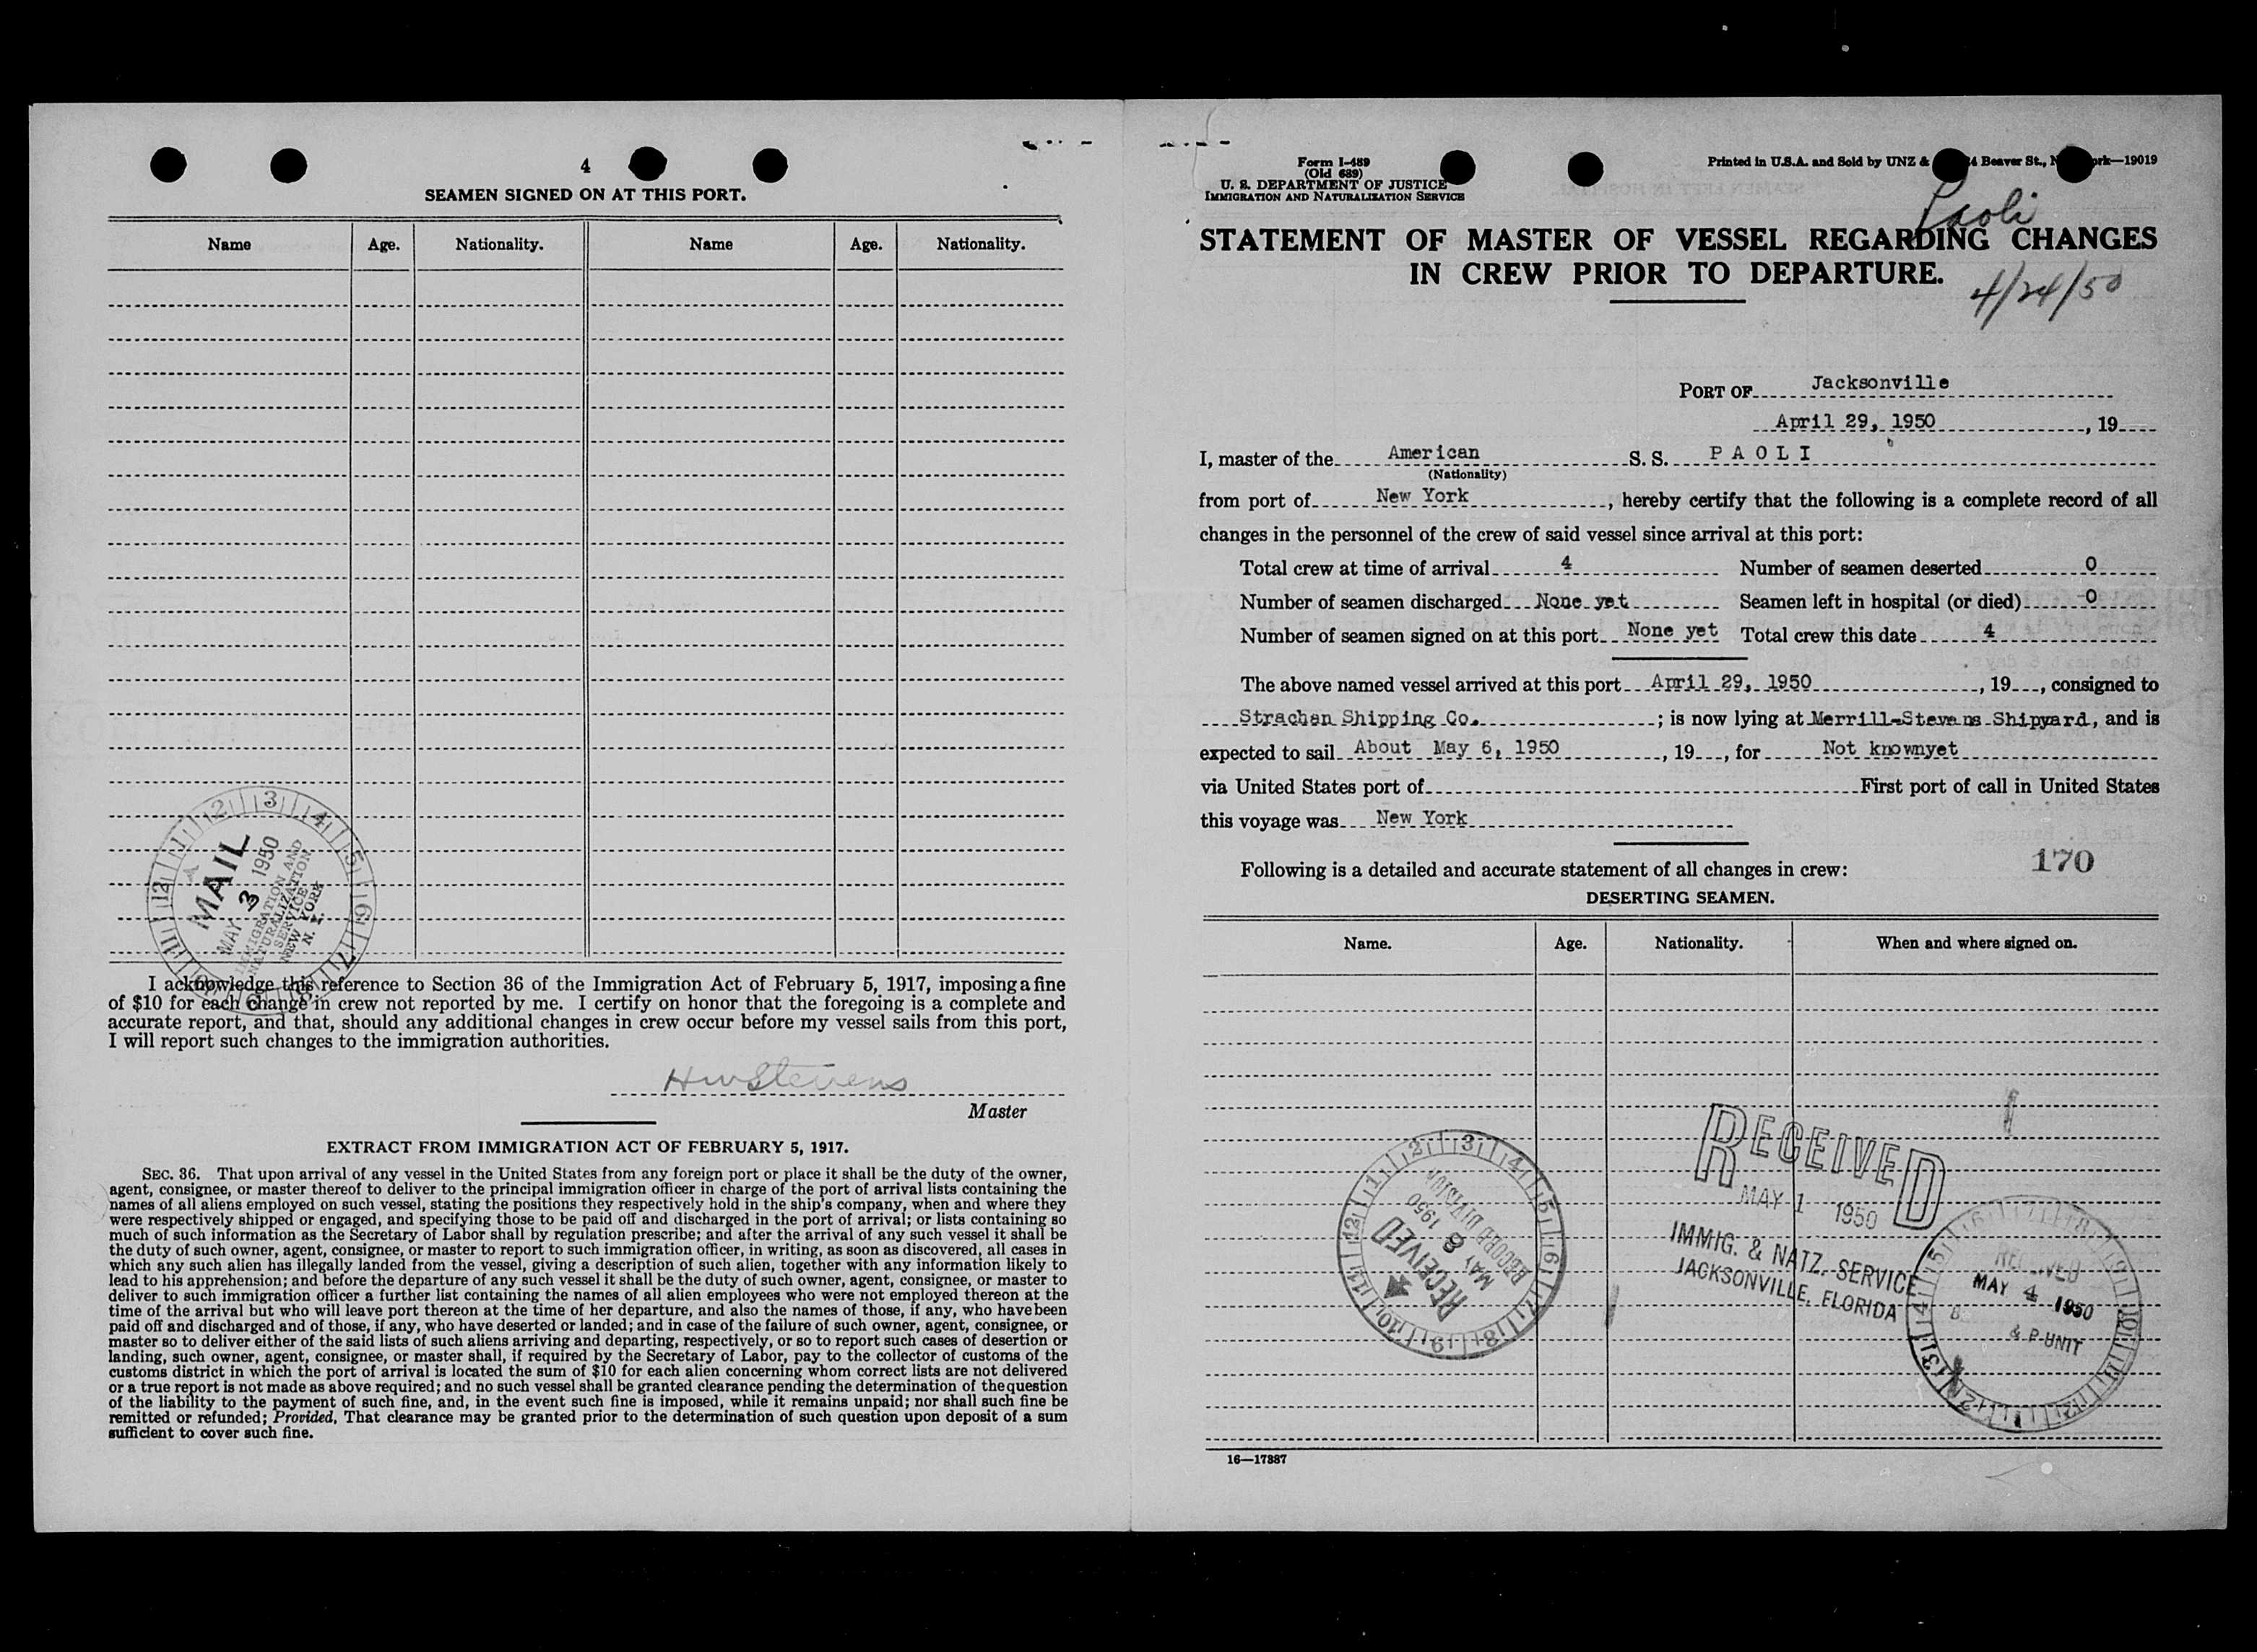 4
SEAMEN SIGNED ON AT THIS PORT.
Name Age. Nationality. Name Age. Nationality.
MAIL
MAY 3 1950
IMMIGRATION AND
NATURALIZATION
SERVICE
NEW YORK
N. Y.
I acknowledge this reference to Section 36 of the Immigration Act of February 5, 1917, imposing a fine
of $10 for each change in crew not reported by me. I certify on honor that the foregoing is a complete and
accurate report, and that, should any additional changes in crew occur before my vessel sails from this port,
I will report such changes to the immigration authorities.
HWStevens
Master
EXTRACT FROM IMMIGRATION ACT OF FEBRUARY 5, 1917.
SEC. 36. That upon arrival of any vessel in the United States from any foreign port or place it shall be the duty of the owner,
agent, consignee, or master thereof to deliver to the principal immigration officer in charge of the port of arrival lists containing the
names of all aliens employed on such vessel, stating the positions they respectively hold in the ship's company, when and where they
were respectively shipped or engaged, and specifying those to be paid off and discharged in the port of arrival; or lists containing so
much of such information as the Secretary of Labor shall by regulation prescribe; and after the arrival of any such vessel it shall be
the duty of such owner, agent, consignee, or master to report to such immigration officer, in writing, as soon as discovered, all cases in
which any such alien has illegally landed from the vessel, giving a description of such alien, together with any information likely to
lead to his apprehension; and before the departure of any such vessel it shall be the duty of such owner, agent, consignee, or master to
deliver to such immigration officer a further list containing the names of all alien employees who were not employed thereon at the
time of the arrival but who will leave port thereon at the time of her departure, and also the names of those, if any, who have been
paid off and discharged and of those, if any, who have deserted or landed; and in case of the failure of such owner, agent, consignee, or
master so to deliver either of the said lists of such aliens arriving and departing, respectively, or so to report such cases of desertion or
landing, such owner, agent, consignee, or master shall, if required by the Secretary of Labor, pay to the collector of customs of the
customs district in which the port of arrival is located the sum of $10 for each alien concerning whom correct lists are not delivered
or a true report is not made as above required; and no such vessel shall be granted clearance pending the determination of the question
of the liability to the payment of such fine, and, in the event such fine is imposed, while it remains unpaid; nor shall such fine be
remitted or refunded; Provided, That clearance may be granted prior to the determination of such question upon deposit of a sum
sufficient to cover such fine.
Form I-489
(Old 689)
U. S. DEPARTMENT OF JUSTICE
IMMIGRATION AND NATURALIZATION SERVICE
Printed in U.S.A. and Sold by UNZ & Beaver St., 19019
Paoli
STATEMENT OF MASTER OF VESSEL REGARDING CHANGES
IN CREW PRIOR TO DEPARTURE.
4/24/50
PORT OF Jacksonville
April 29, 1950, 19
I, master of the American S. S. PAOLI
(Nationality)
from port of New York, hereby certify that the following is a complete record of all
changes in the personnel of the crew of said vessel since arrival at this port:
Total crew at time of arrival 4 Number of seamen deserted 0
Number of seamen discharged None yet Seamen left in hospital (or died) 0
Number of seamen signed on at this port None yet Total crew this date 4
The above named vessel arrived at this port April 29, 1950, 19, consigned to
Strachan Shipping Co.; is now lying at Merrill-Stevens Shipyard, and is
expected to sail About May 6, 1950, 19, for Not knownyet
via United States port of First port of call in United States
this voyage was New York
170
Following is a detailed and accurate statement of all changes in crew:
DESERTING SEAMEN.
Name. Age. Nationality. When and where signed on.
RECEIVED
MAY 1 1950
IMMIG. & NATZ. SERVICE
JACKSONVILLE, FLORIDA
RECORD DIVISION
1950
MAY 8
RECEIVED
RECEIVED
MAY 4 1950
& P UNIT
16—17887